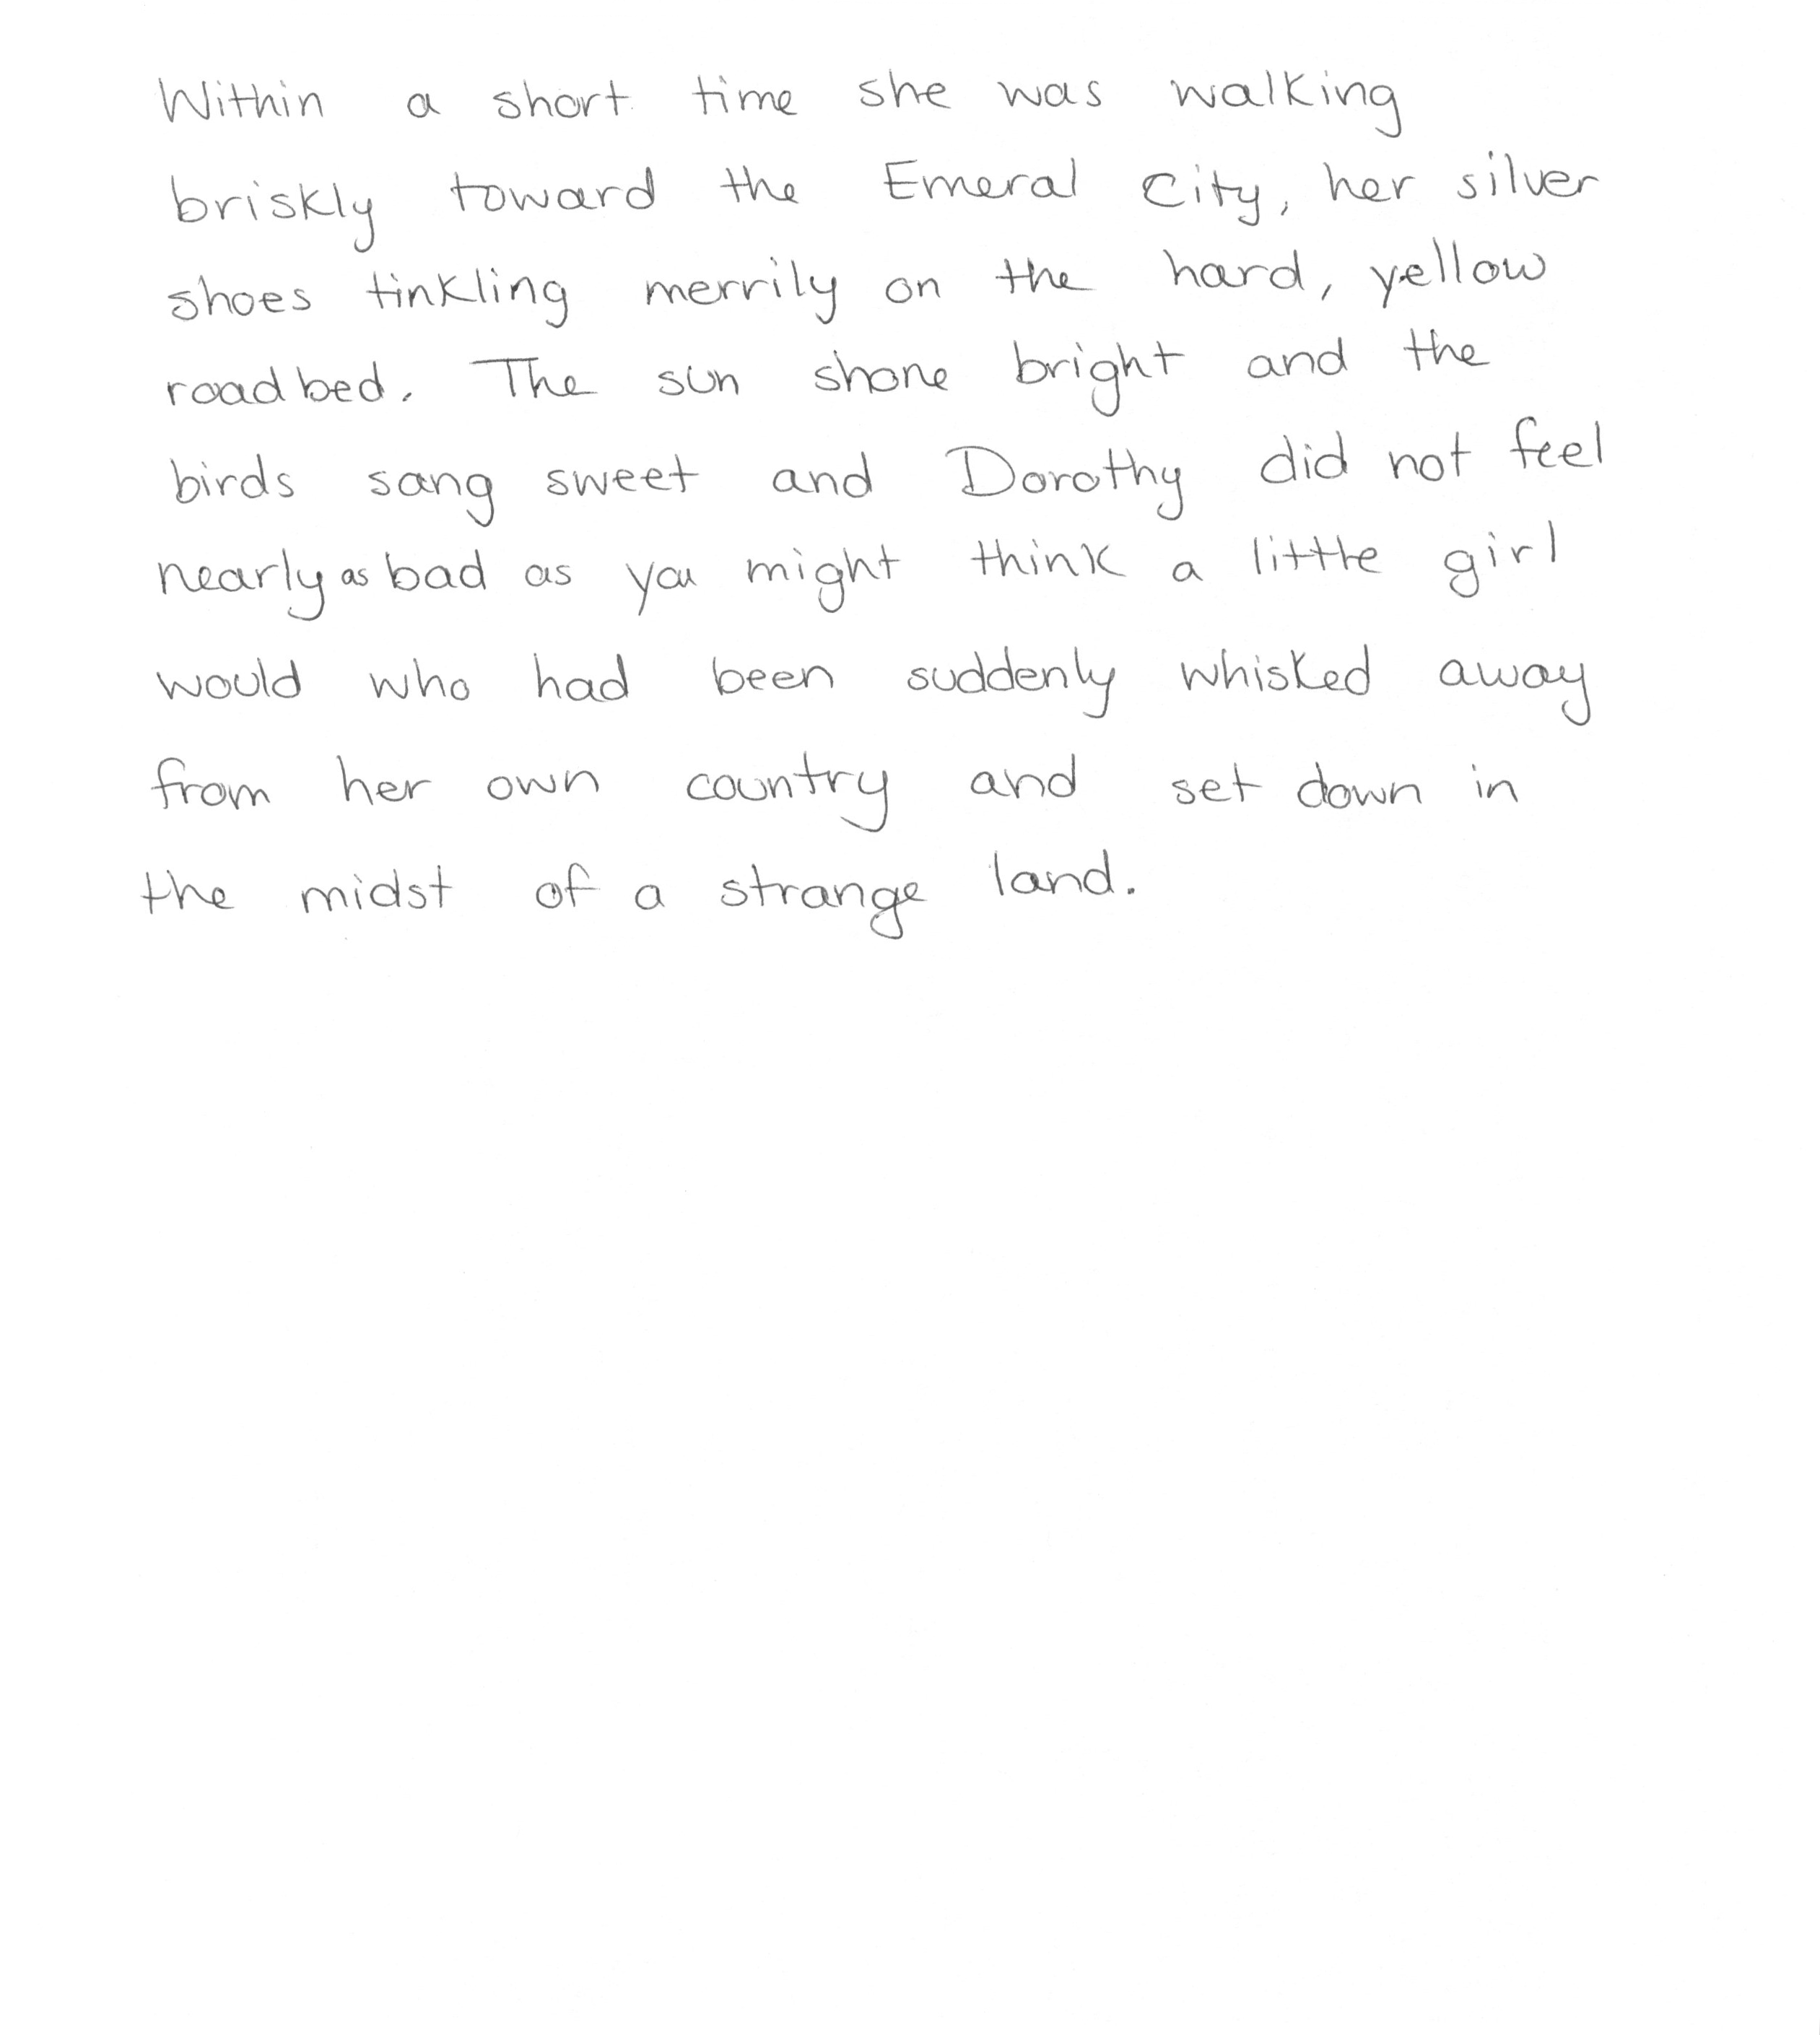 Within a short time she was walking
briskly toward the Emeral City, her silver
shoes tinkling merrily on the hard, yellow
roadbed. The sun shone bright and the
birds sang sweet and Dorothy did not feel
nearly as bad as you might think a little girl
would who had been suddenly whisked away
from her own country and set down in
the midst of a strange land.